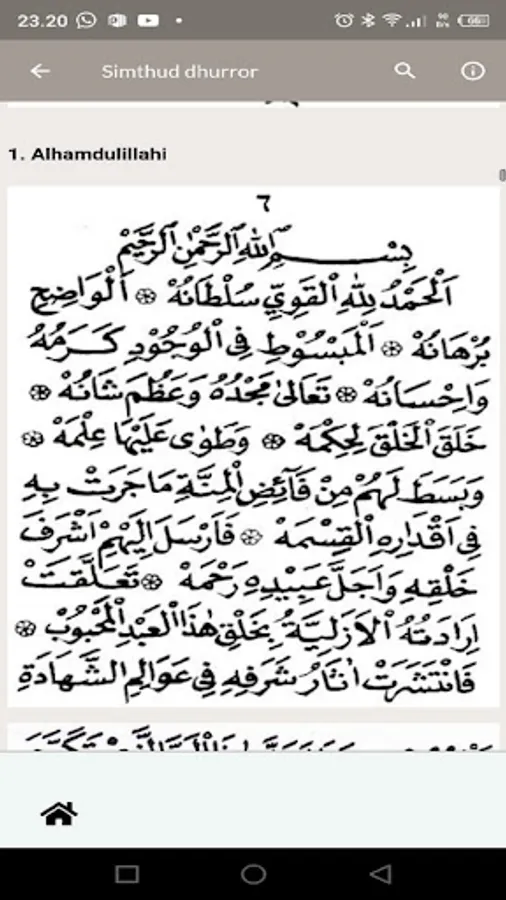 23.20
66
Simthud dhurror
1. Alhamdulillahi
٦
بِسْمِ اللهِ الرَّحْمٰنِ الرَّحِيْمِ
اَلْحَمْدُ لِلّٰهِ الْقَوِيِّ سُلْطَانُهْ ۞ اَلْوَاضِحِ
بُرْهَانُهْ ۞ اَلْمَبْسُوْطِ فِى الْوُجُوْدِ كَرَمُهُ
وَاِحْسَانُهْ ۞ تَعَالىٰ مَجْدُهُ وَعَظُمَ شَانُهْ ۞
خَلَقَ الْخَلْقَ لِحِكْمَهْ ۞ وَطَوٰى عَلَيْهَا عِلْمَهْ ۞
وَبَسَطَ لَهُمْ مِنْ فَآئِضِ الْمِنَّةِ مَا جَرَتْ بِهِ
فِى اَقْدَارِهِ الْقِسْمَهْ ۞ فَاَرْسَلَ اِلَيْهِمْ اَشْرَفَ
خَلْقِهِ وَاَجَلَّ عَبِيْدِهِ رَحْمَهْ ۞ تَعَلَّقَتْ
اِرَادَتُهُ الْاَزَلِيَّةُ بِخَلْقِ هٰذَا الْعَبْدِ الْمَحْبُوْبْ ۞
فَانْتَشَرَتْ اٰثَارُ شَرَفِهِ فِى عَوَالِمِ الشَّهَادَةِ